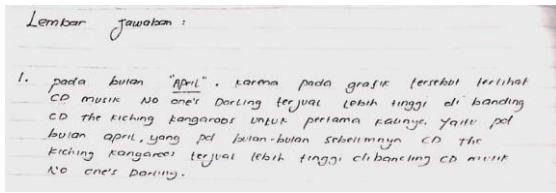 Lembar Jawaban :
1. pada bulan "April". karena pada grafik tersebut terlihat
CD musik No one's Darling terjual lebih tinggi di banding
CD the kiching kangaroos untuk pertama kalinya. Yaitu pd
bulan april, yang pd bulan-bulan sebelimnya CD the
kiching kangaroos terjual lebih tinggi dibanding CD musik
No one's Darling.